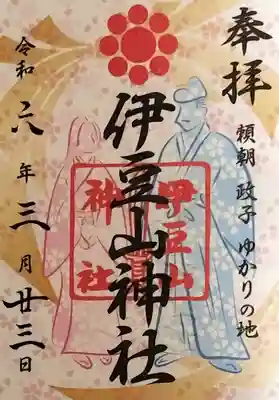 奉拝
頼朝 政子 ゆかりの地
伊豆山神社
伊豆山
神社
令和六年三月廿三日